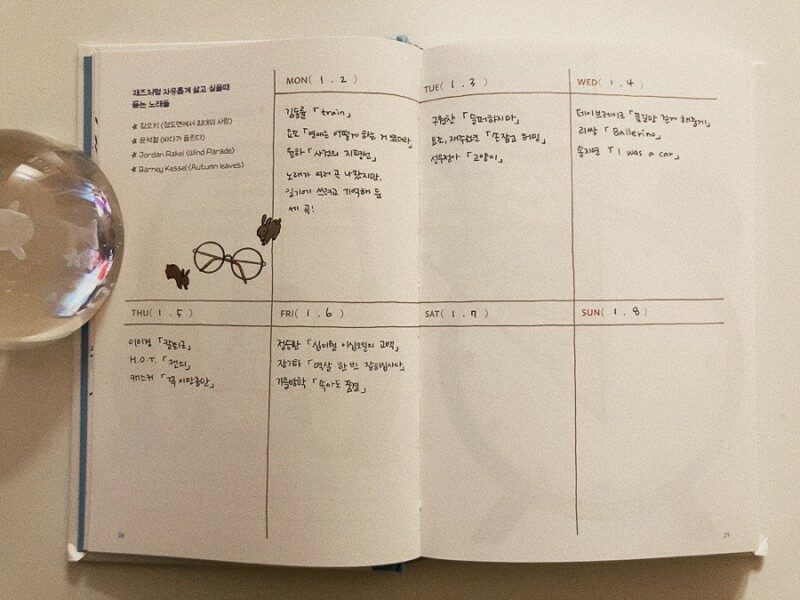 재즈처럼 자유롭게 살고 싶을때
듣는 노래들
★ 김오키 (점도면에서 최대의 사랑)
★ 윤석철 (바다가 들린다)
★ Jordan Rakei (Wind Parade)
★ Barney Kessel (Autumn leaves)
MON( 1. 2 )
김동률 「train」
요조 「연애는 어떻게 하는 거 였더라」
윤하 「사건의 지평선」
노래가 여러 곡 나왔지만,
일기에 쓰려고 기억해 둔
세 곡!
TUE( 1. 3 )
「슬퍼하지마」
요조, 「손잡고 허밍」
선우정아 「고양이」
WED( 1. 4 )
데이브레이크 「꽃길만 걷게 해줄게」
리쌍 「Ballerino」
「I was a car」
THU( 1. 5 )
이이경 「칼퇴근」
H.O.T. 「캔디」
캐스커 「꼭 이만큼만」
FRI( 1. 6 )
정승환 「십이월 이십오일의 고백」
장기하 「명상 한 번 잡하십시다」
가을방학 「속아도 꿈결」
SAT( 1. 7 )
SUN( 1. 8 )
28
29